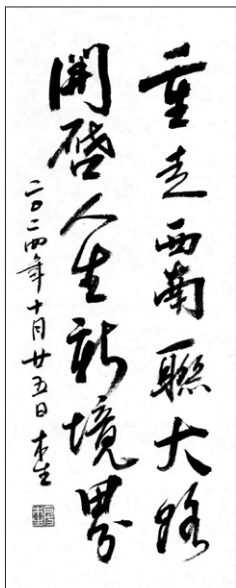 重走西南聯大路
開啓人生新境界
二〇二四年十月廿五日 本生